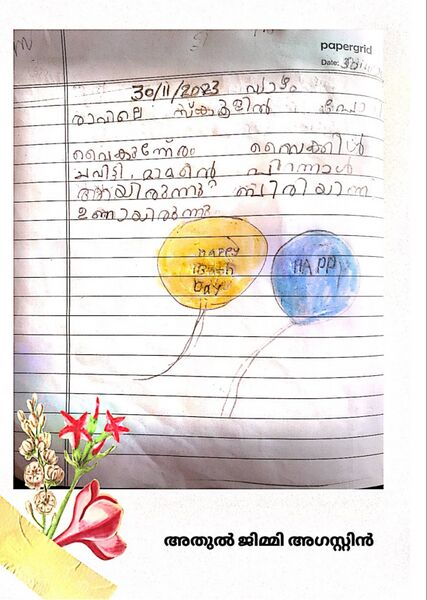 papergrid
Date: 30
30/11/2023 വ്യാഴം
രാവിലെ സ്കൂളിൽ പോ
വൈകുന്നേരം സൈക്കിൾ
ചവിട്ടി. മാമന്റെ പിറന്നാൾ
ആയിരുന്നു ബിരിയാണി
ഉണ്ടായിരുന്നു
HAPPY
Birth
Day
HAPPY
അതുൽ ജിമ്മി അഗസ്റ്റിൻ